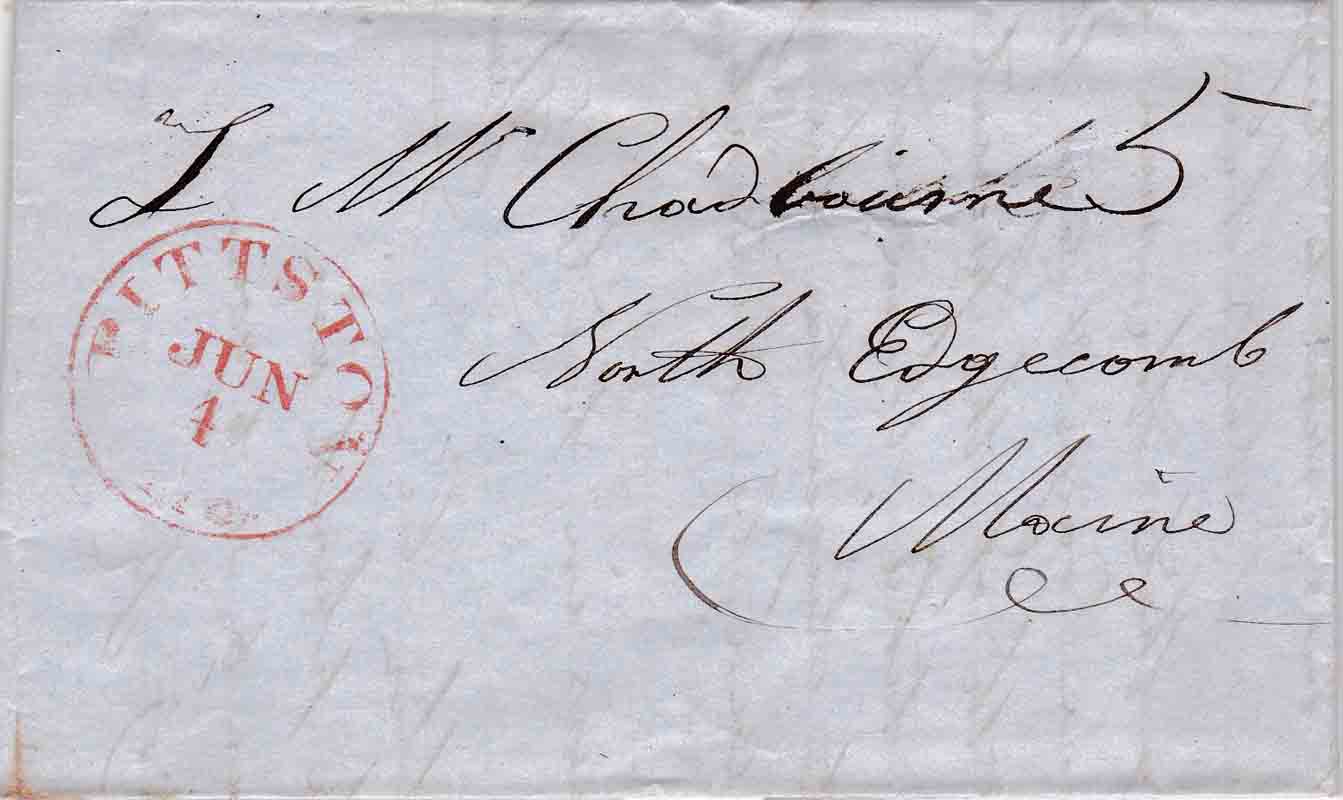 L W Chadbourne 5
North Edgecomb
Maine
PITTSTON
JUN
1